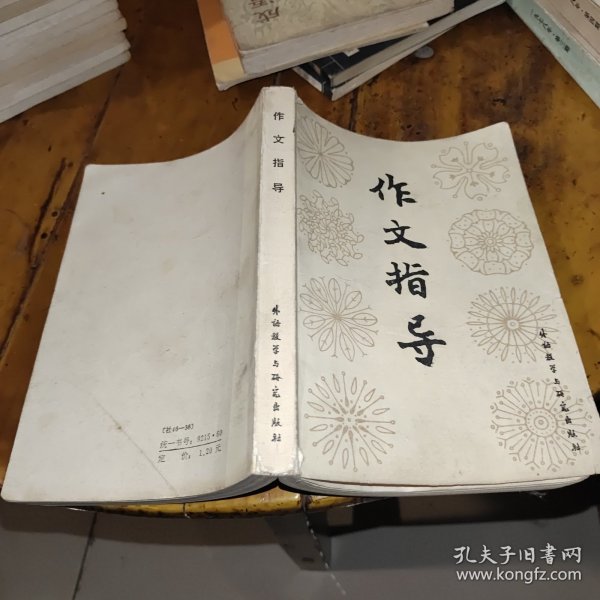 作文指导
外语教学与研究出版社
作文指导
外语教学与研究出版社
统一书号：9215·89
定 价：1.20 元
孔夫子旧书网
www.kongfz.com